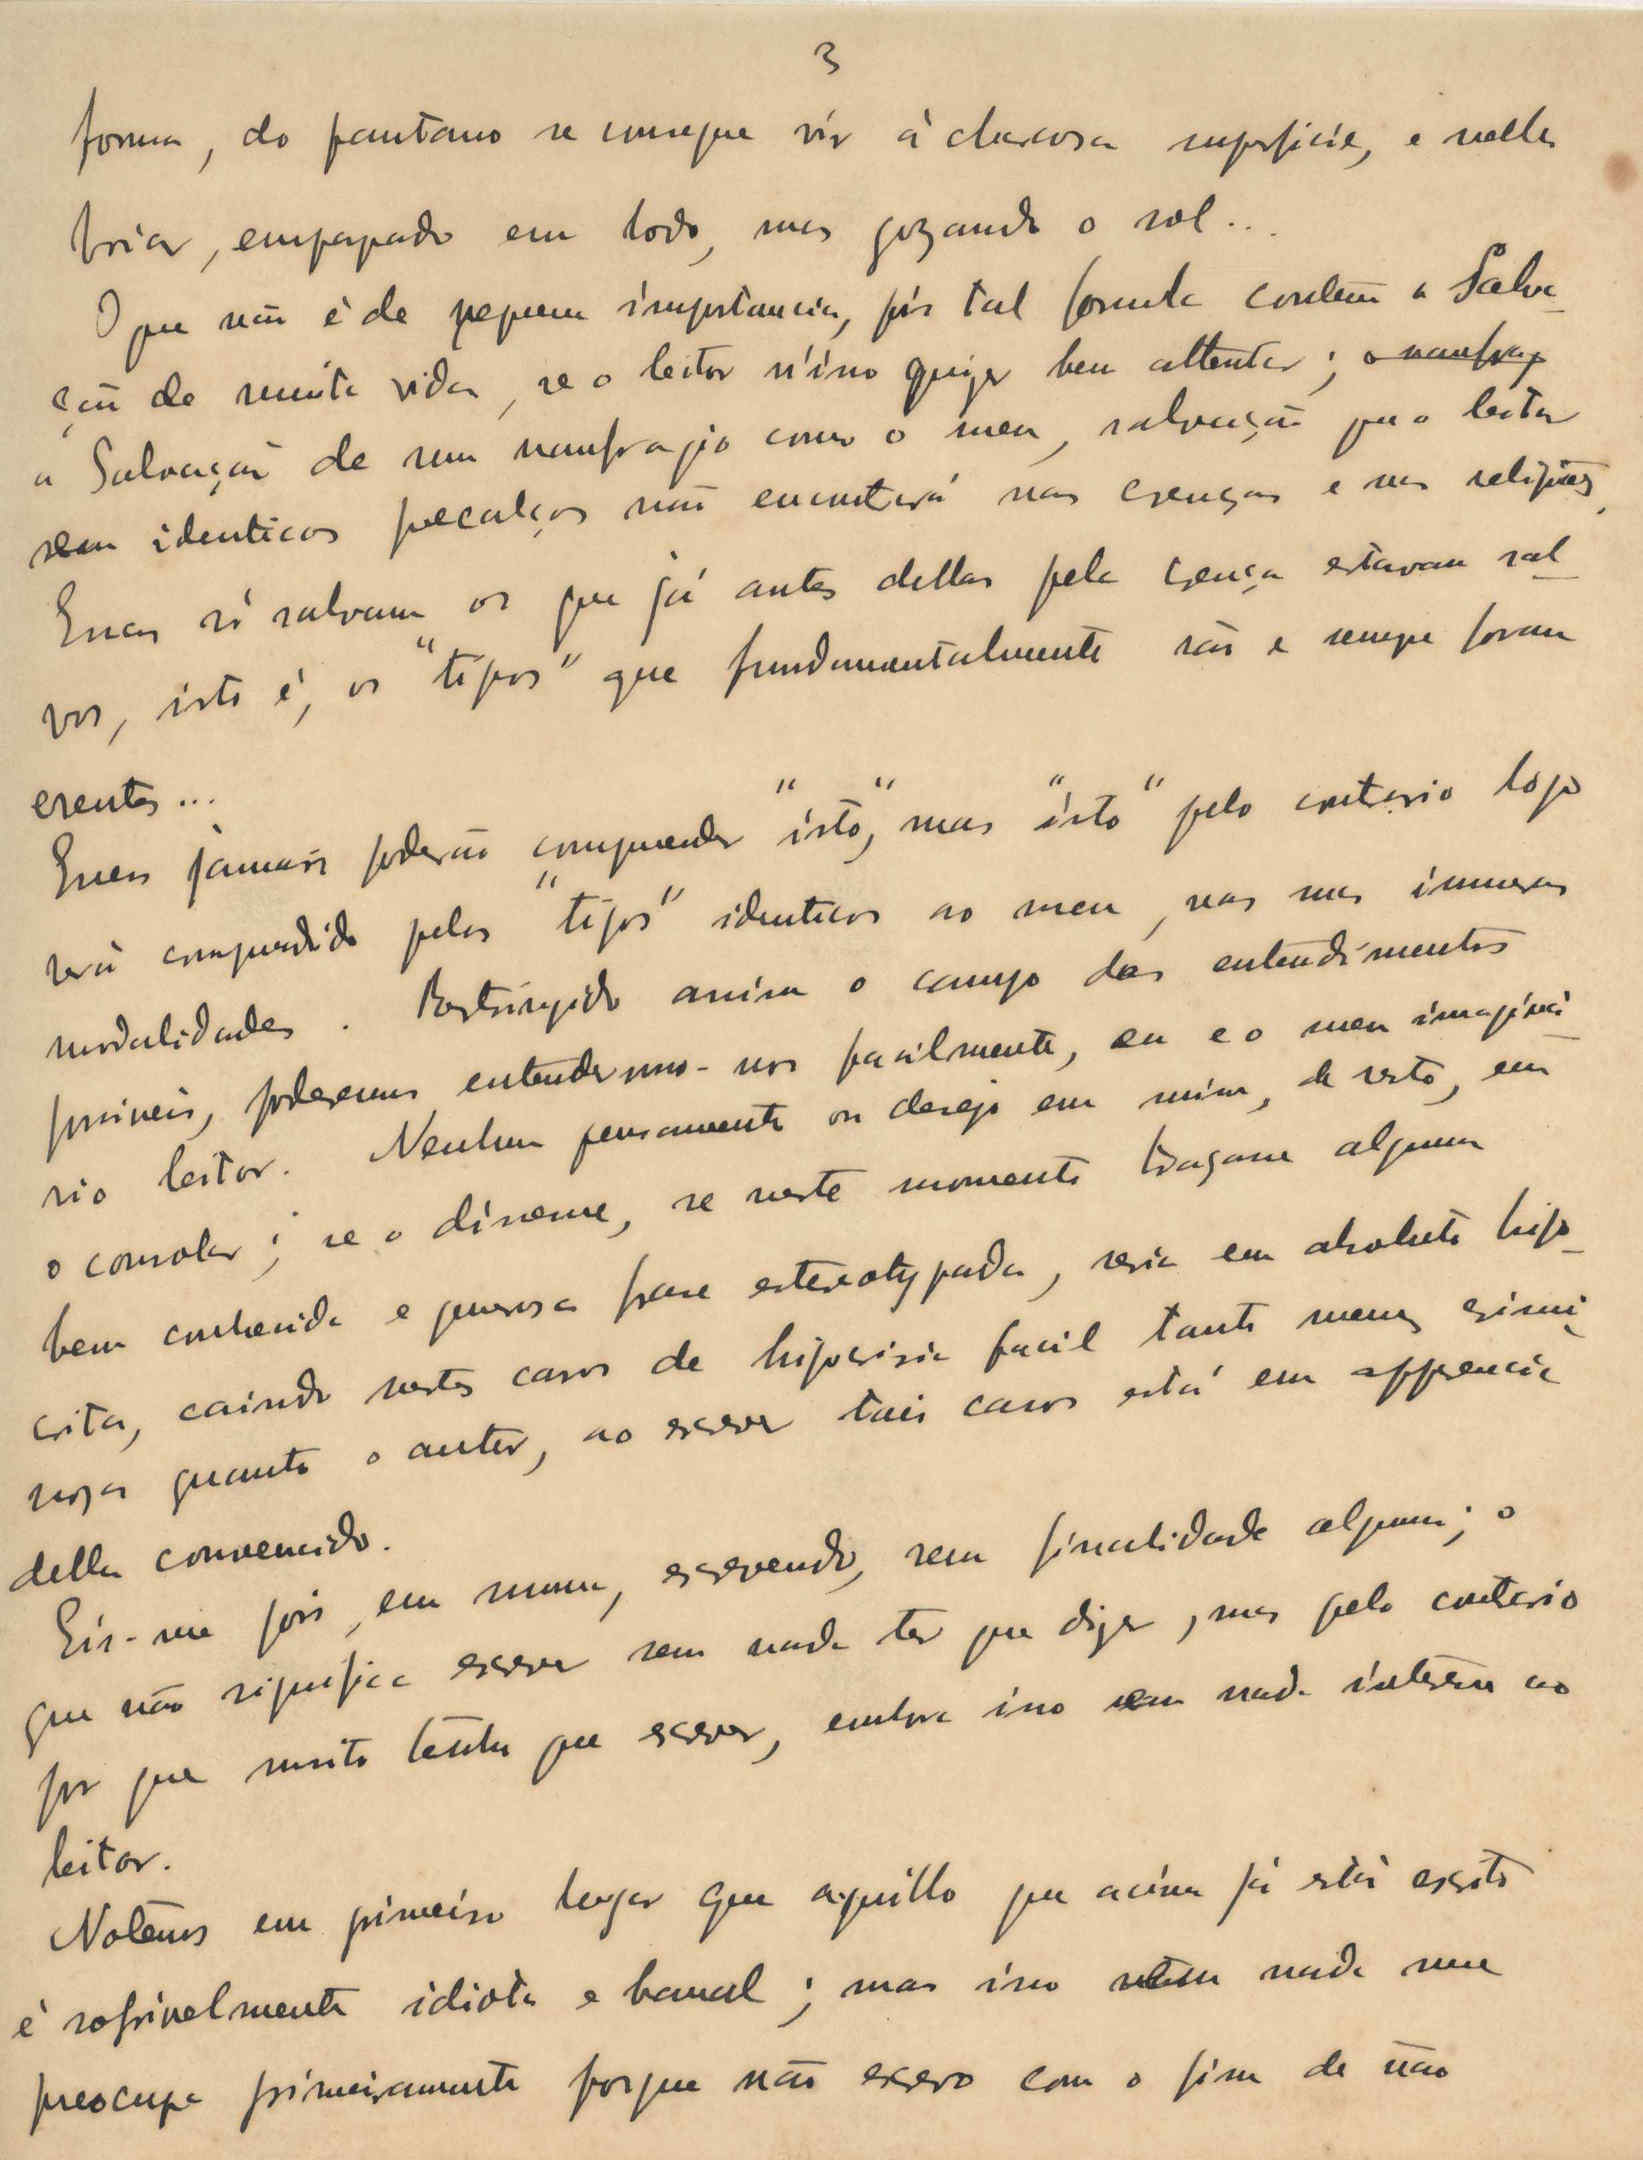 3
forma, do pantano se consegue vir á charcosa superficie, e nella
boiar, empapado em lodo, mas gozando o sol...
O que não é de pequena importancia, pois tal formula contém a Salva-
ção de muita vida, se o leitor n'isso quizer bem attentar; o naufrag
a Salvação de um naufragio como o meu, salvação que o leitor
sem identicos precalços não encontrará nas crenças e nas religiões,
Essas só salvam os que já antes dellas pela crença estavam sal-
vos, isto é, os "tipos" que fundamentalmente são e sempre foram
crentes...
Esses jamais poderão comprehender "isto", mas "isto" pelo contrario logo
será comprendido pelos "tipos" identicos ao meu, nas suas inumeras
modalidades. Restringido assim o campo dos entendimentos
possiveis, poderemos entendermo-nos facilmente, eu e o meu imaginá
rio leitor. Nenhum pensamento ou desejo em mim, de resto, em
o consolar; se o dissesse, se neste momento traçasse alguma
bem conhecida e generosa frase estereotypada, seria em absoluto hipo-
crita, caindo nestes casos de hipocrisia facil tanto menos crimi-
nosa quanto o autor, ao escrever tais casos está em apparencia
della convencido.
Eis-me pois, em suma, escrevendo, sem finalidade alguma; o
que não significa escrever sem nada ter que dizer, mas pelo contrario
por que muito tenho que escrever, embora isso em nada interesse ao
leitor.
Notemos em primeiro lugar que aquillo que acima já está escrito
é sofrivelmente idiota e banal; mas isso nada me
preocupa primeiramente porque não escrevo com o fim de não